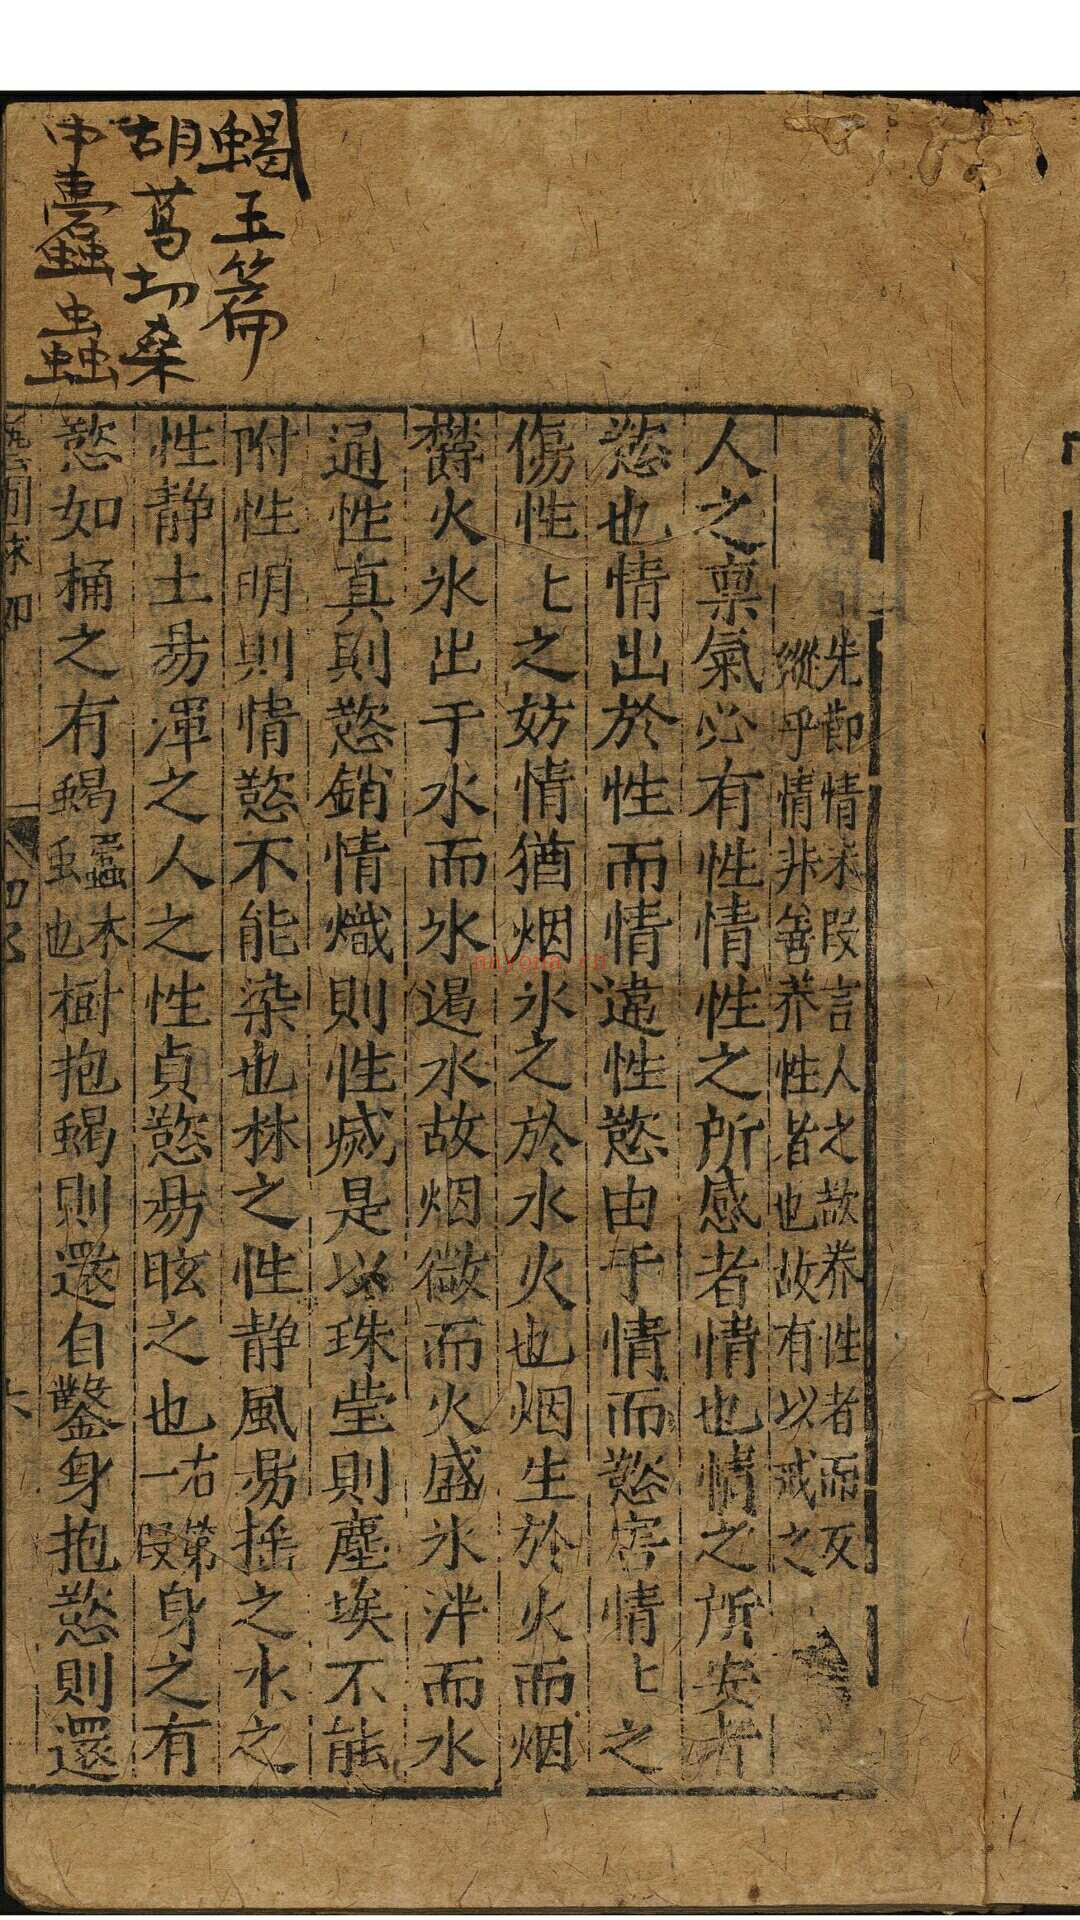 蝎玉篇
胡葛切桑
中蠹蟲
先節情末段言人之故养性者而反
縱乎情非善养性者也故有以戒之
人之禀氣必有性情性之所感者情也情之所安者
慾也情出於性而情違性慾由于情而慾害情匕之
傷性匕之妨情猶烟氷之於水火也烟生於火而烟
欝火氷出于水而氷遏水故烟微而火盛氷泮而水
通性真則慾銷情熾則性烕是以珠瑩則塵埃不能
附性明則情慾不能染也林之性静風昜揺之水之
性静土昜渾之人之性貞慾昜眩之也右第一段身之有
慾如桶之有蝎蠹木虫也樹抱蝎則還自鑿身抱慾則還
nayona.cn